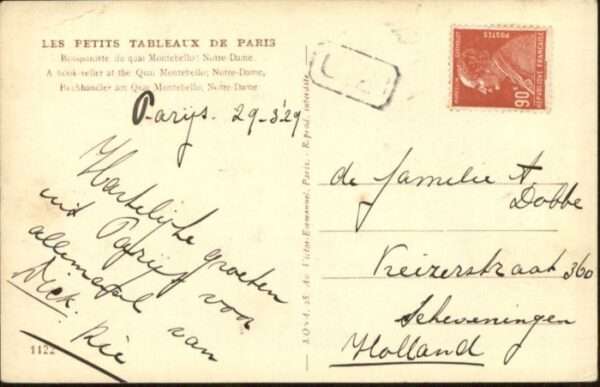 LES PETITS TABLEAUX DE PARIS
Bouquiniste du quai Montebello; Notre-Dame
A book-seller at the Quai Montebello; Notre-Dame,
Buchhändler am Quai Montebello; Notre-Dame
Parijs. 29-3'29
Hartelijke groeten
uit Parijs voor
allemaal van
Dick. Rie
1122
Av. Victor-Emmanuel, Paris. Reprod. interdite
POSTES
90c
RÉPUBLIQUE FRANÇAISE
de familie A
Dobbe
Keizerstraat 360
Scheveningen
Holland